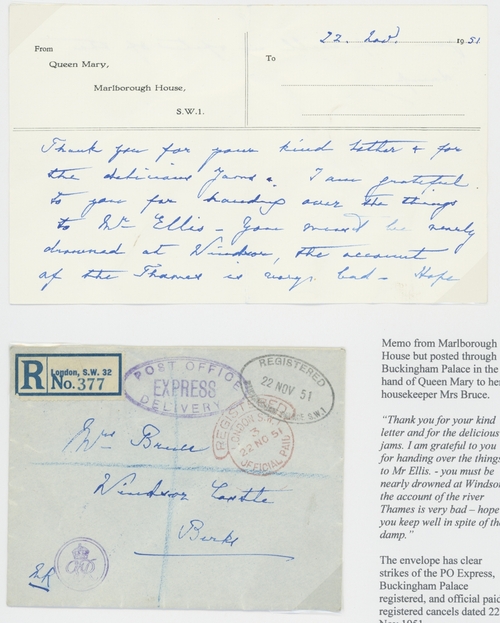 From
Queen Mary,
Marlborough House,
S.W.1.
22. Nov. 1951
To
Thank you for your kind letter & for
the delicious Jams. I am grateful
to you for handing over the things
to Mr Ellis - You must be nearly
drowned at Windsor, the account
of the Thames is very bad - Hope
R London, S.W. 32
No. 377
POST OFFICE
EXPRESS
DELIVERY
REGISTERED
22 NOV 51
S.W.1
REGISTERED
LONDON S.W.
22 NO 51
OFFICIAL PAID
Mrs Bruce
Windsor Castle
Berks
Memo from Marlborough
House but posted through
Buckingham Palace in the
hand of Queen Mary to her
housekeeper Mrs Bruce.
"Thank you for your kind
letter and for the delicious
jams. I am grateful to you
for handing over the things
to Mr Ellis. - you must be
nearly drowned at Windsor
the account of the river
Thames is very bad – hope
you keep well in spite of the
damp."
The envelope has clear
strikes of the PO Express,
Buckingham Palace
registered, and official paid
registered cancels dated 22
Nov 1951